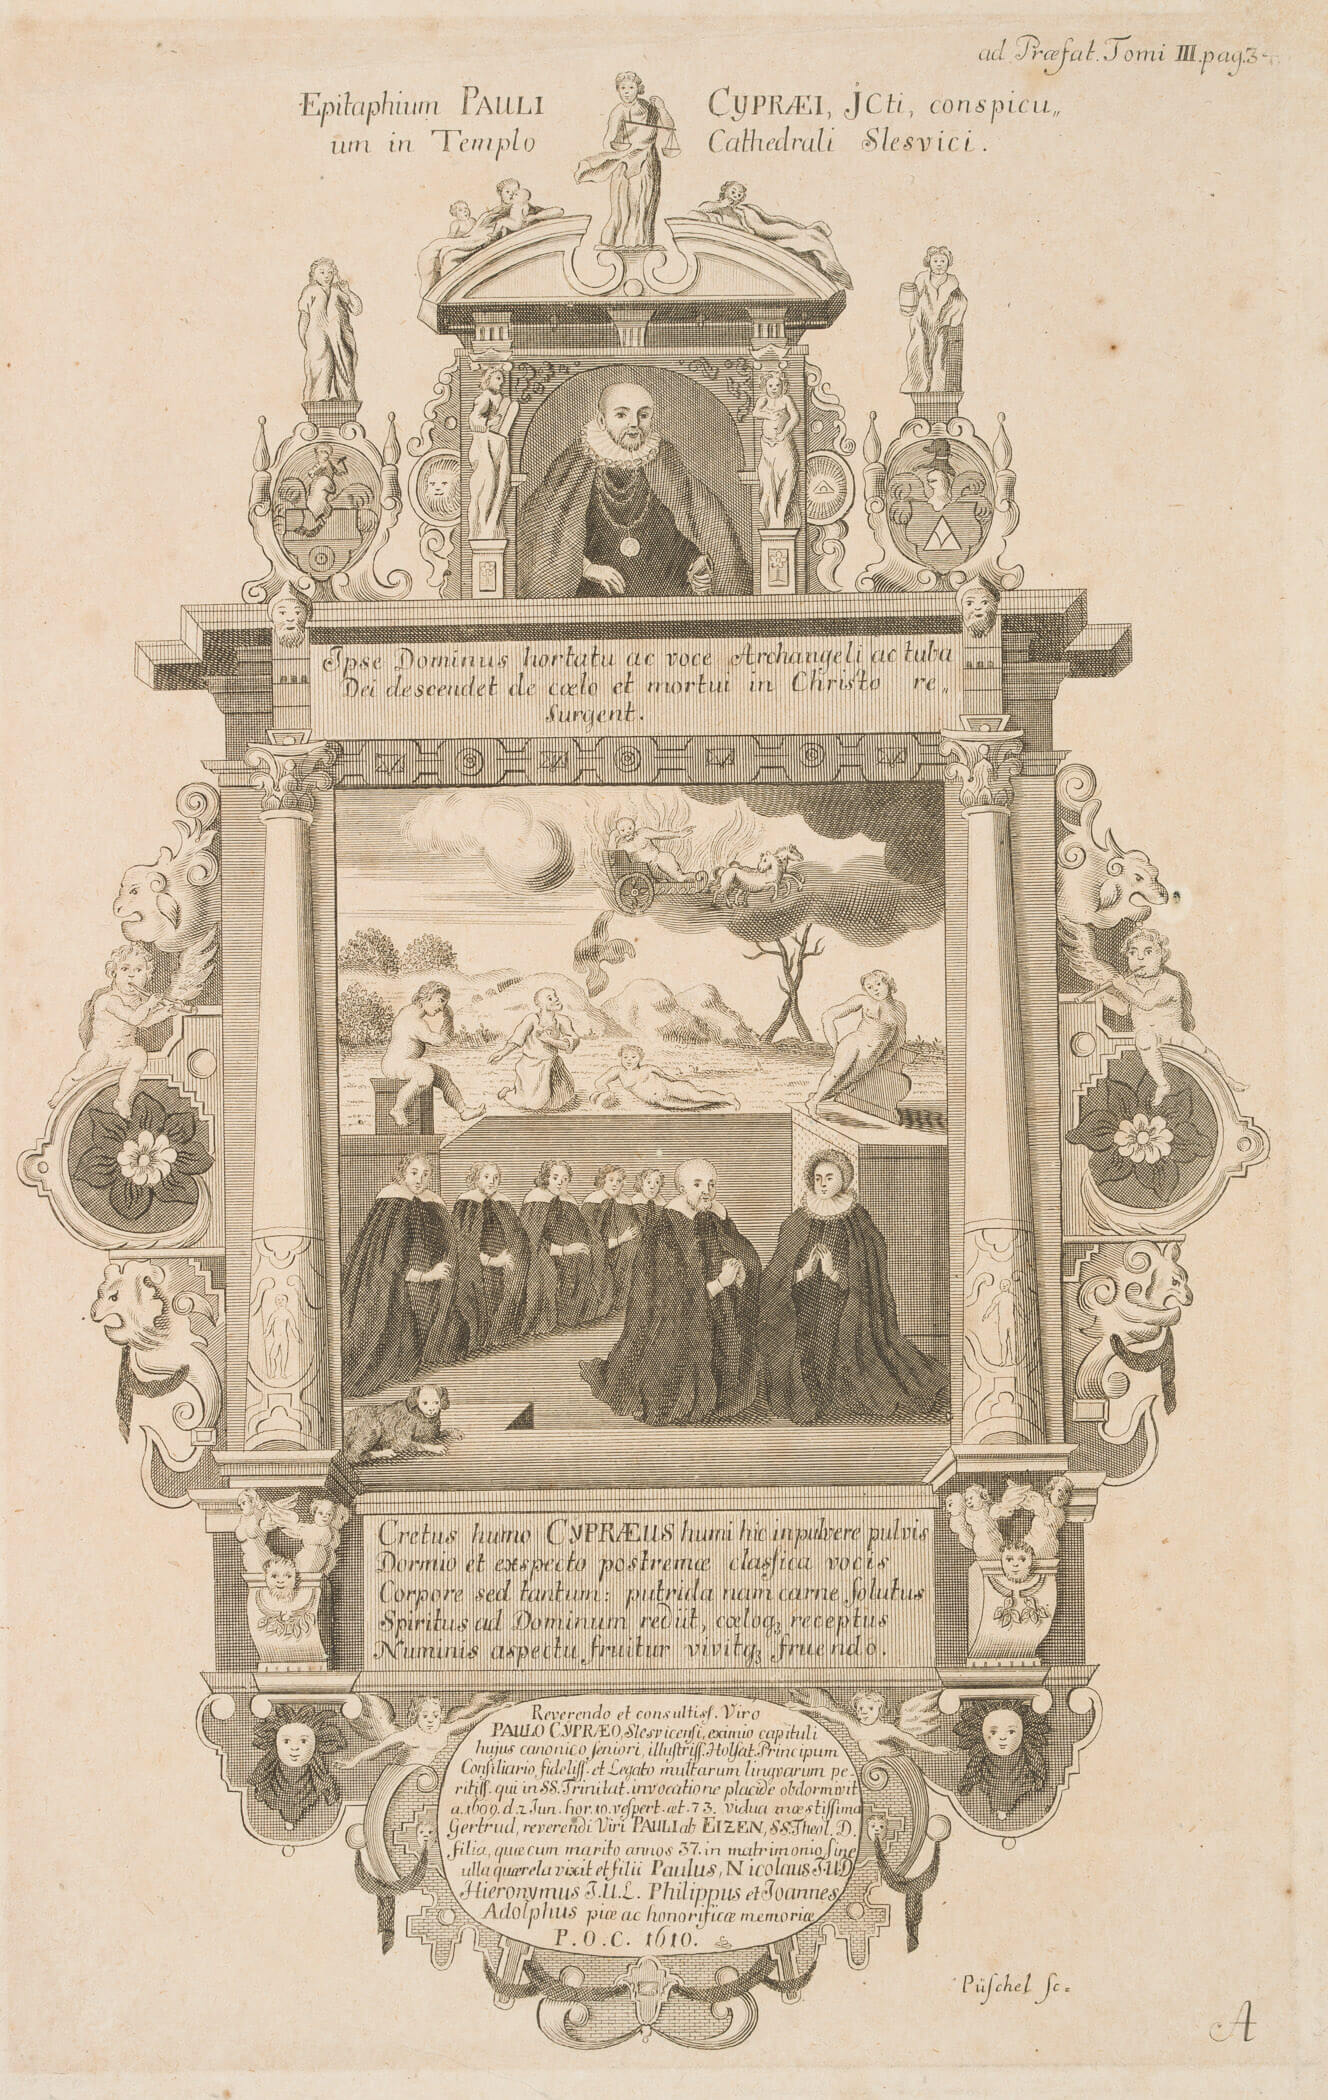 ad Præfat. Tomi III. pag. 3
Epitaphium PAULI CYPRÆI, JCti, conspicu„
um in Templo Cathedrali Slesvici.
Ipse Dominus hortatu ac voce Archangeli ac tuba
Dei descendet de cœlo et mortui in Christo re„
surgent.
Cretus humo CYPRÆUS humi hic in pulvere pulvis
Dormio et exspecto postremæ claſsica vocis
Corpore sed tantum: putrida nam carne ſolutus
Spiritus ad Dominum rediit, cœloqꝫ receptus
Numinis aspectu fruitur vivitqꝫ fruendo.
Reverendo et consultiſſ. Viro
PAULO CYPRÆO, Slesvicenſi, eximio capituli
hujus canonico ſeniori, illuſtriſſ. Holſat. Principum
Conſiliario fideliſſ. et Legato multarum lingvarum pe-
ritiſſ. qui in SS. Trinitat. invocatione placide obdormivit
a. 1609. d. 2 Jun. hor. 10. veſpert. æt. 73. vidua mœstiſsima
Gertrud, reverendi Viri PAULI ab EIZEN, SS. Theol. D.
filia, quæ cum marito annos 37. in matrimonio ſine
ulla quærela vixit et filii Paulus, Nicolaus J.U.D
Hieronymus J.U.L. Philippus et Joannes
Adolphus piæ ac honorificæ memoriæ
P. O. C. 1610.
Püſchel ſc.
A